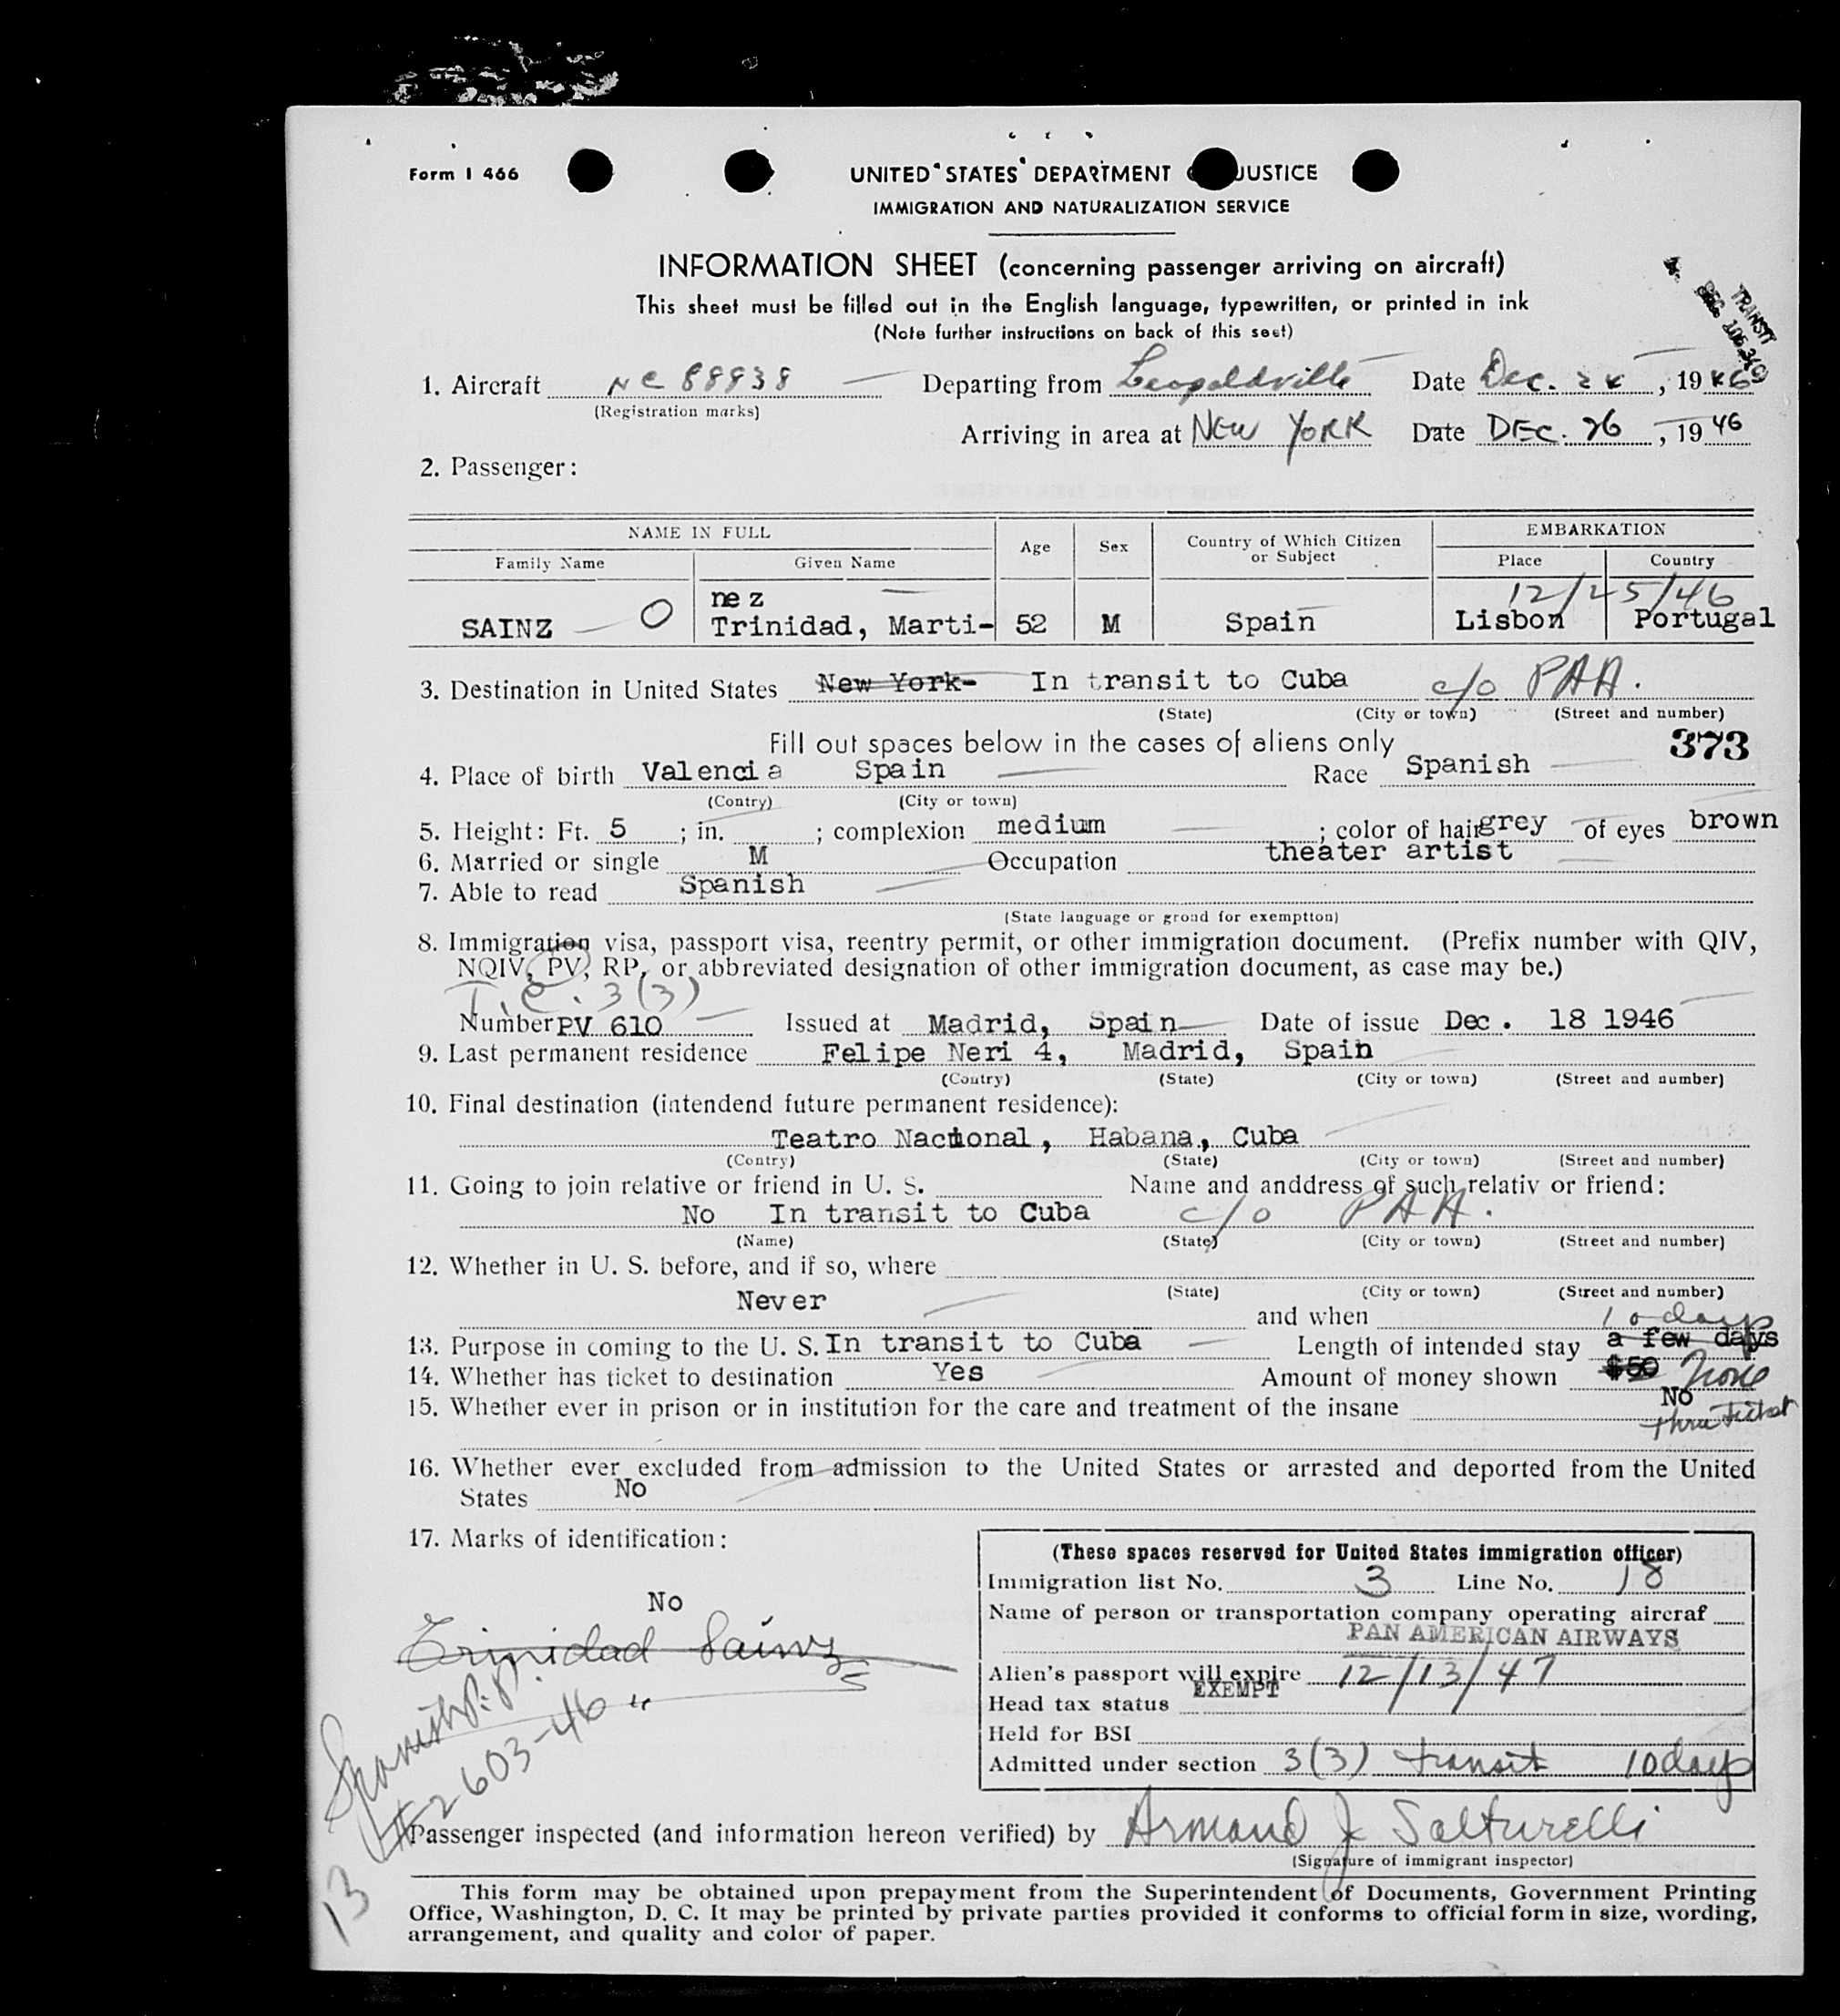 Form I 466
UNITED STATES DEPARTMENT JUSTICE
IMMIGRATION AND NATURALIZATION SERVICE
INFORMATION SHEET (concerning passenger arriving on aircraft)
This sheet must be filled out in the English language, typewritten, or printed in ink
(Note further instructions on back of this seet)
TRANSIT
1. Aircraft NC 88838 Departing from Leopoldville Date Dec. 24, 1946
(Registration marks)
Arriving in area at NEW YORK Date DEC. 26, 1946
2. Passenger:
NAME IN FULL Age Sex Country of Which Citizen or Subject EMBARKATION
Family Name Given Name Place Country
nez 12/25/46
SAINZ O Trinidad, Marti- 52 M Spain Lisbon Portugal
3. Destination in United States New York- In transit to Cuba c/o PAA.
(State) (City or town) (Street and number)
Fill out spaces below in the cases of aliens only 373
4. Place of birth Valencia Spain Race Spanish
(Contry) (City or town)
5. Height: Ft. 5 ; in. ; complexion medium ; color of hair grey of eyes brown
6. Married or single M Occupation theater artist
7. Able to read Spanish
(State language or groud for exemptton)
8. Immigration visa, passport visa, reentry permit, or other immigration document. (Prefix number with QIV,
NQIV, PV, RP, or abbreviated designation of other immigration document, as case may be.)
T.C. 3(3)
Number PV 610 Issued at Madrid, Spain Date of issue Dec. 18 1946
9. Last permanent residence Felipe Neri 4, Madrid, Spain
(Contry) (State) (City or town) (Street and number)
10. Final destination (intendend future permanent residence):
Teatro Nacional, Habana, Cuba
(Contry) (State) (City or town) (Street and number)
11. Going to join relative or friend in U. S. Name and anddress of such relativ or friend:
No In transit to Cuba c/o PAA.
(Name) (State) (City or town) (Street and number)
12. Whether in U. S. before, and if so, where
(State) (City or town) (Street and number)
Never and when
10 days
13. Purpose in coming to the U. S. In transit to Cuba Length of intended stay a few days
14. Whether has ticket to destination Yes Amount of money shown $50 None
15. Whether ever in prison or in institution for the care and treatment of the insane No
thru Ticket
16. Whether ever excluded from admission to the United States or arrested and deported from the United
States No
17. Marks of identification:
No
Trinidad Sainz
Spanish P.P.
#2603-46
13
(These spaces reserved for United States immigration officer)
Immigration list No. 3 Line No. 18
Name of person or transportation company operating aircraf
PAN AMERICAN AIRWAYS
Alien's passport will expire 12/13/47
Head tax status EXEMPT
Held for BSI
Admitted under section 3(3) transit 10 days
Passenger inspected (and information hereon verified) by Armand J Salturelli
(Signature of immigrant inspector)
This form may be obtained upon prepayment from the Superintendent of Documents, Government Printing
Office, Washington, D. C. It may be printed by private parties provided it conforms to official form in size, wording,
arrangement, and quality and color of paper.